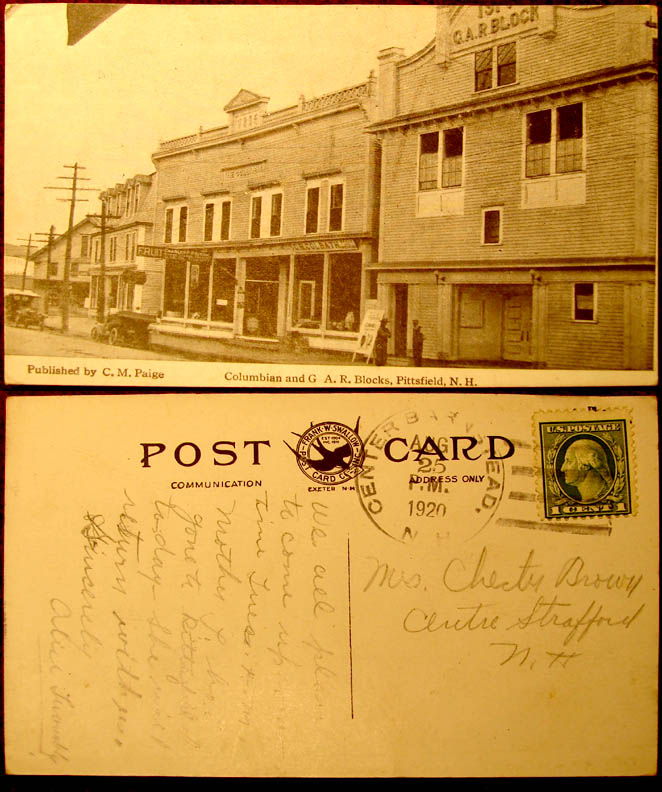 G.A.R BLOCK
FRUIT
Published by C. M. Paige
Columbian and G A. R. Blocks, Pittsfield, N. H.
POST CARD
COMMUNICATION
ADDRESS ONLY
FRANK W. SWALLOW
POST CARD CO. INC.
EXETER N.H.
CENTER BARNSTEAD,
AUG
25
P.M.
1920
N H
U.S. POSTAGE
1 CENT 1
Mrs. Chester Brown
Centre Strafford
N. H
We all plan
to come up
time
Mother
gone to Pittsfield
to-day She will
return with you
Sincerely